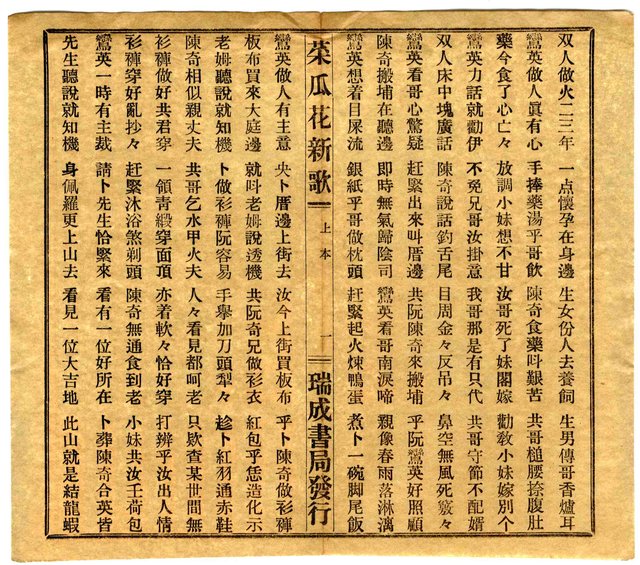 双人做火二三年　一点懷孕在身邊　生女份人去養飼　生男傳哥香爐耳
鸞英做人眞有心　手捧藥湯乎哥飲　陳奇食藥呌艱苦　共哥槌腰捺腹肚
藥今食了心亡々　放調小妹想不甘　汝哥死了妹閣嫁　勸敎小妹嫁別个
鸞英力話就勸伊　不免兄哥汝掛意　我哥那是有只代　共哥守節不配婿
双人床中塊廣話　陳奇說話釣舌尾　目周金々反吊々　鼻空無風死竅々
鸞英看哥心驚疑　赶緊出來叫厝邊　共阮陳奇來搬埔　乎阮鸞英好照顧
陳奇搬埔在聽邊　即時無氣歸陰司　鸞英看哥南淚啼　親像春雨落淋漓
鸞英想着目屎流　銀紙乎哥做枕頭　赶緊起火煉鴨蛋　煮卜一碗脚尾飯
茱瓜花新歌　上本　一　瑞成書局發行
鸞英做人有主意　央卜厝邊上街去　汝今上街買板布　乎卜陳奇做衫褲
板布買來大庭邊　就呌老姆說透機　共阮奇兄做衫衣　紅包乎恁造化示
老姆聽說就知機　卜做衫褲阮容易　手舉加刀頭犁々　趁卜紅羽通赤鞋
陳奇相似親丈夫　共哥乞水甲火夫　人々看見都呵老　只欵查某世間無
衫褲做好共君穿　一領青緞穿面頂　亦着軟々恰好穿　打辨乎汝出人情
衫褲穿好亂抄々　赶緊沐浴煞剃頭　陳奇無通食到老　小妹共汝壬荷包
鸞英一時有主裁　請卜先生恰緊來　看有一位好所在　卜葬陳奇合英皆
先生聽說就知機　身佩羅更上山去　看見一位大吉地　此山就是結龍蝦